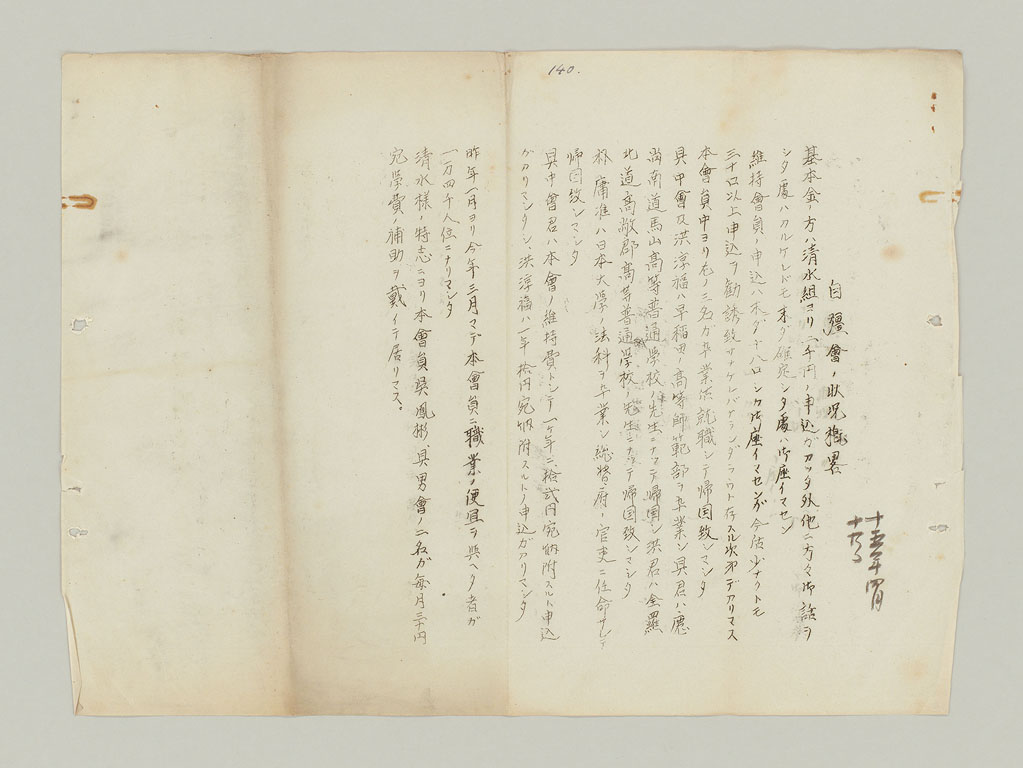 140.
自彊會ノ状況概略
十五年四月
十六日
基本金ノ方ハ清水組ヨリ一千円ノ申込ガアッタ外他ニ方々御話ヲ
シタ處ハアルケレドモ未ダ確定シタ處ハ御座イマセン
維持會員ノ申込ハ未ダ十八口シカ御座イマセンガ今后少ナクトモ
三十口以上申込ヲ勧誘致サナケレバナランダラウト存スル次第デアリマス
本會員中ヨリ左ノ三名ガ卒業後就職シテ帰国致シマシタ
具中會及洪淳福ハ早稲田高等師範部ヲ卒業シ具君ハ慶
尚南道馬山高等普通学校ノ先生ニナッテ帰国シ洪君ハ全羅
北道高敞郡高等普通学校ノ先生ニナッテ帰国致シマシタ
朴庸准ハ日本大学ノ法科ヲ卒業シ総督府ノ官吏ニ任命サレテ
帰国致シマシタ
具中會君ハ本會ノ維持費トシテ一ヶ年ニ拾弐円宛納附スルト申込
ガアリマシタシ、洪淳福ハ一年ニ拾円宛納附スルトノ申込ガアリマシタ
昨年一月ヨリ今年三月マデ本會員ニ職業ノ便宜ヲ與ヘタ者ガ
一万四千人位ニナリマシタ
清水様ノ特志ニヨリ本會員吳鳳彬、具男會ノ二名ガ毎月三十円
宛學費ノ補助ヲ戴イテ居リマス。